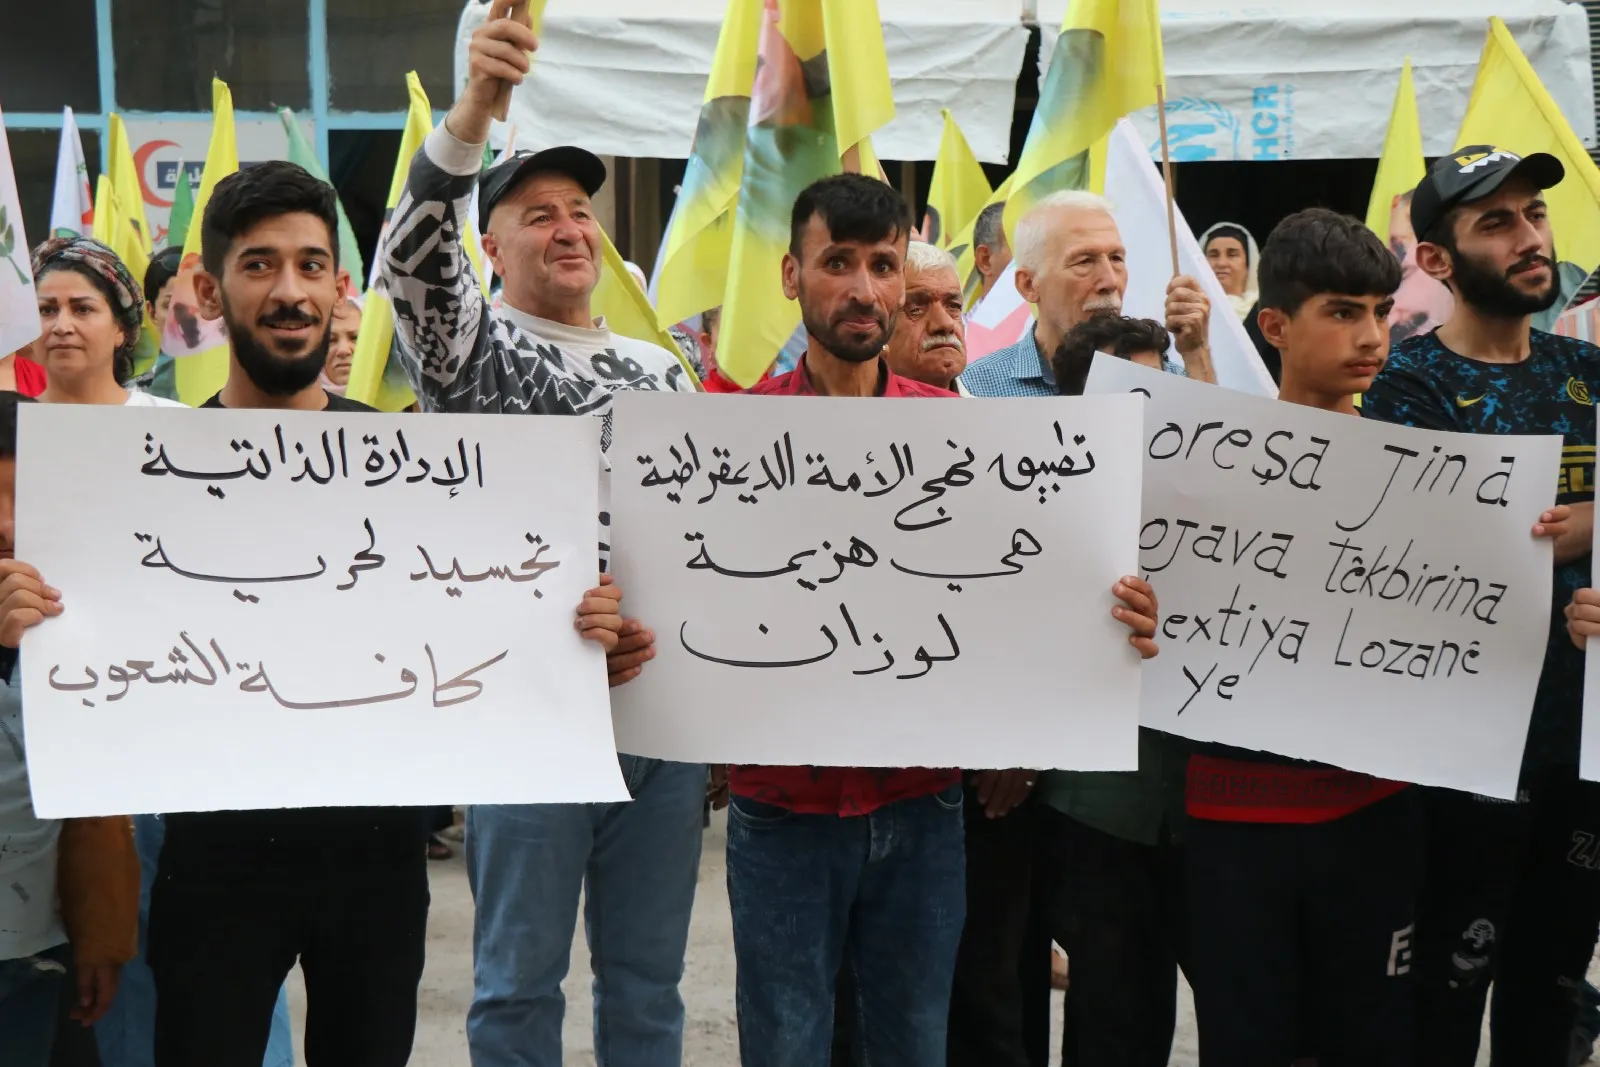 الإدارة الذاتية
تجسيد لحرية
كافة الشعوب
تطبيق نهج الأمة الديمقراطية
هي هزيمة
لوزان
oreşa Jina
ojava têkbirina
extiya Lozanê
ye
HCR